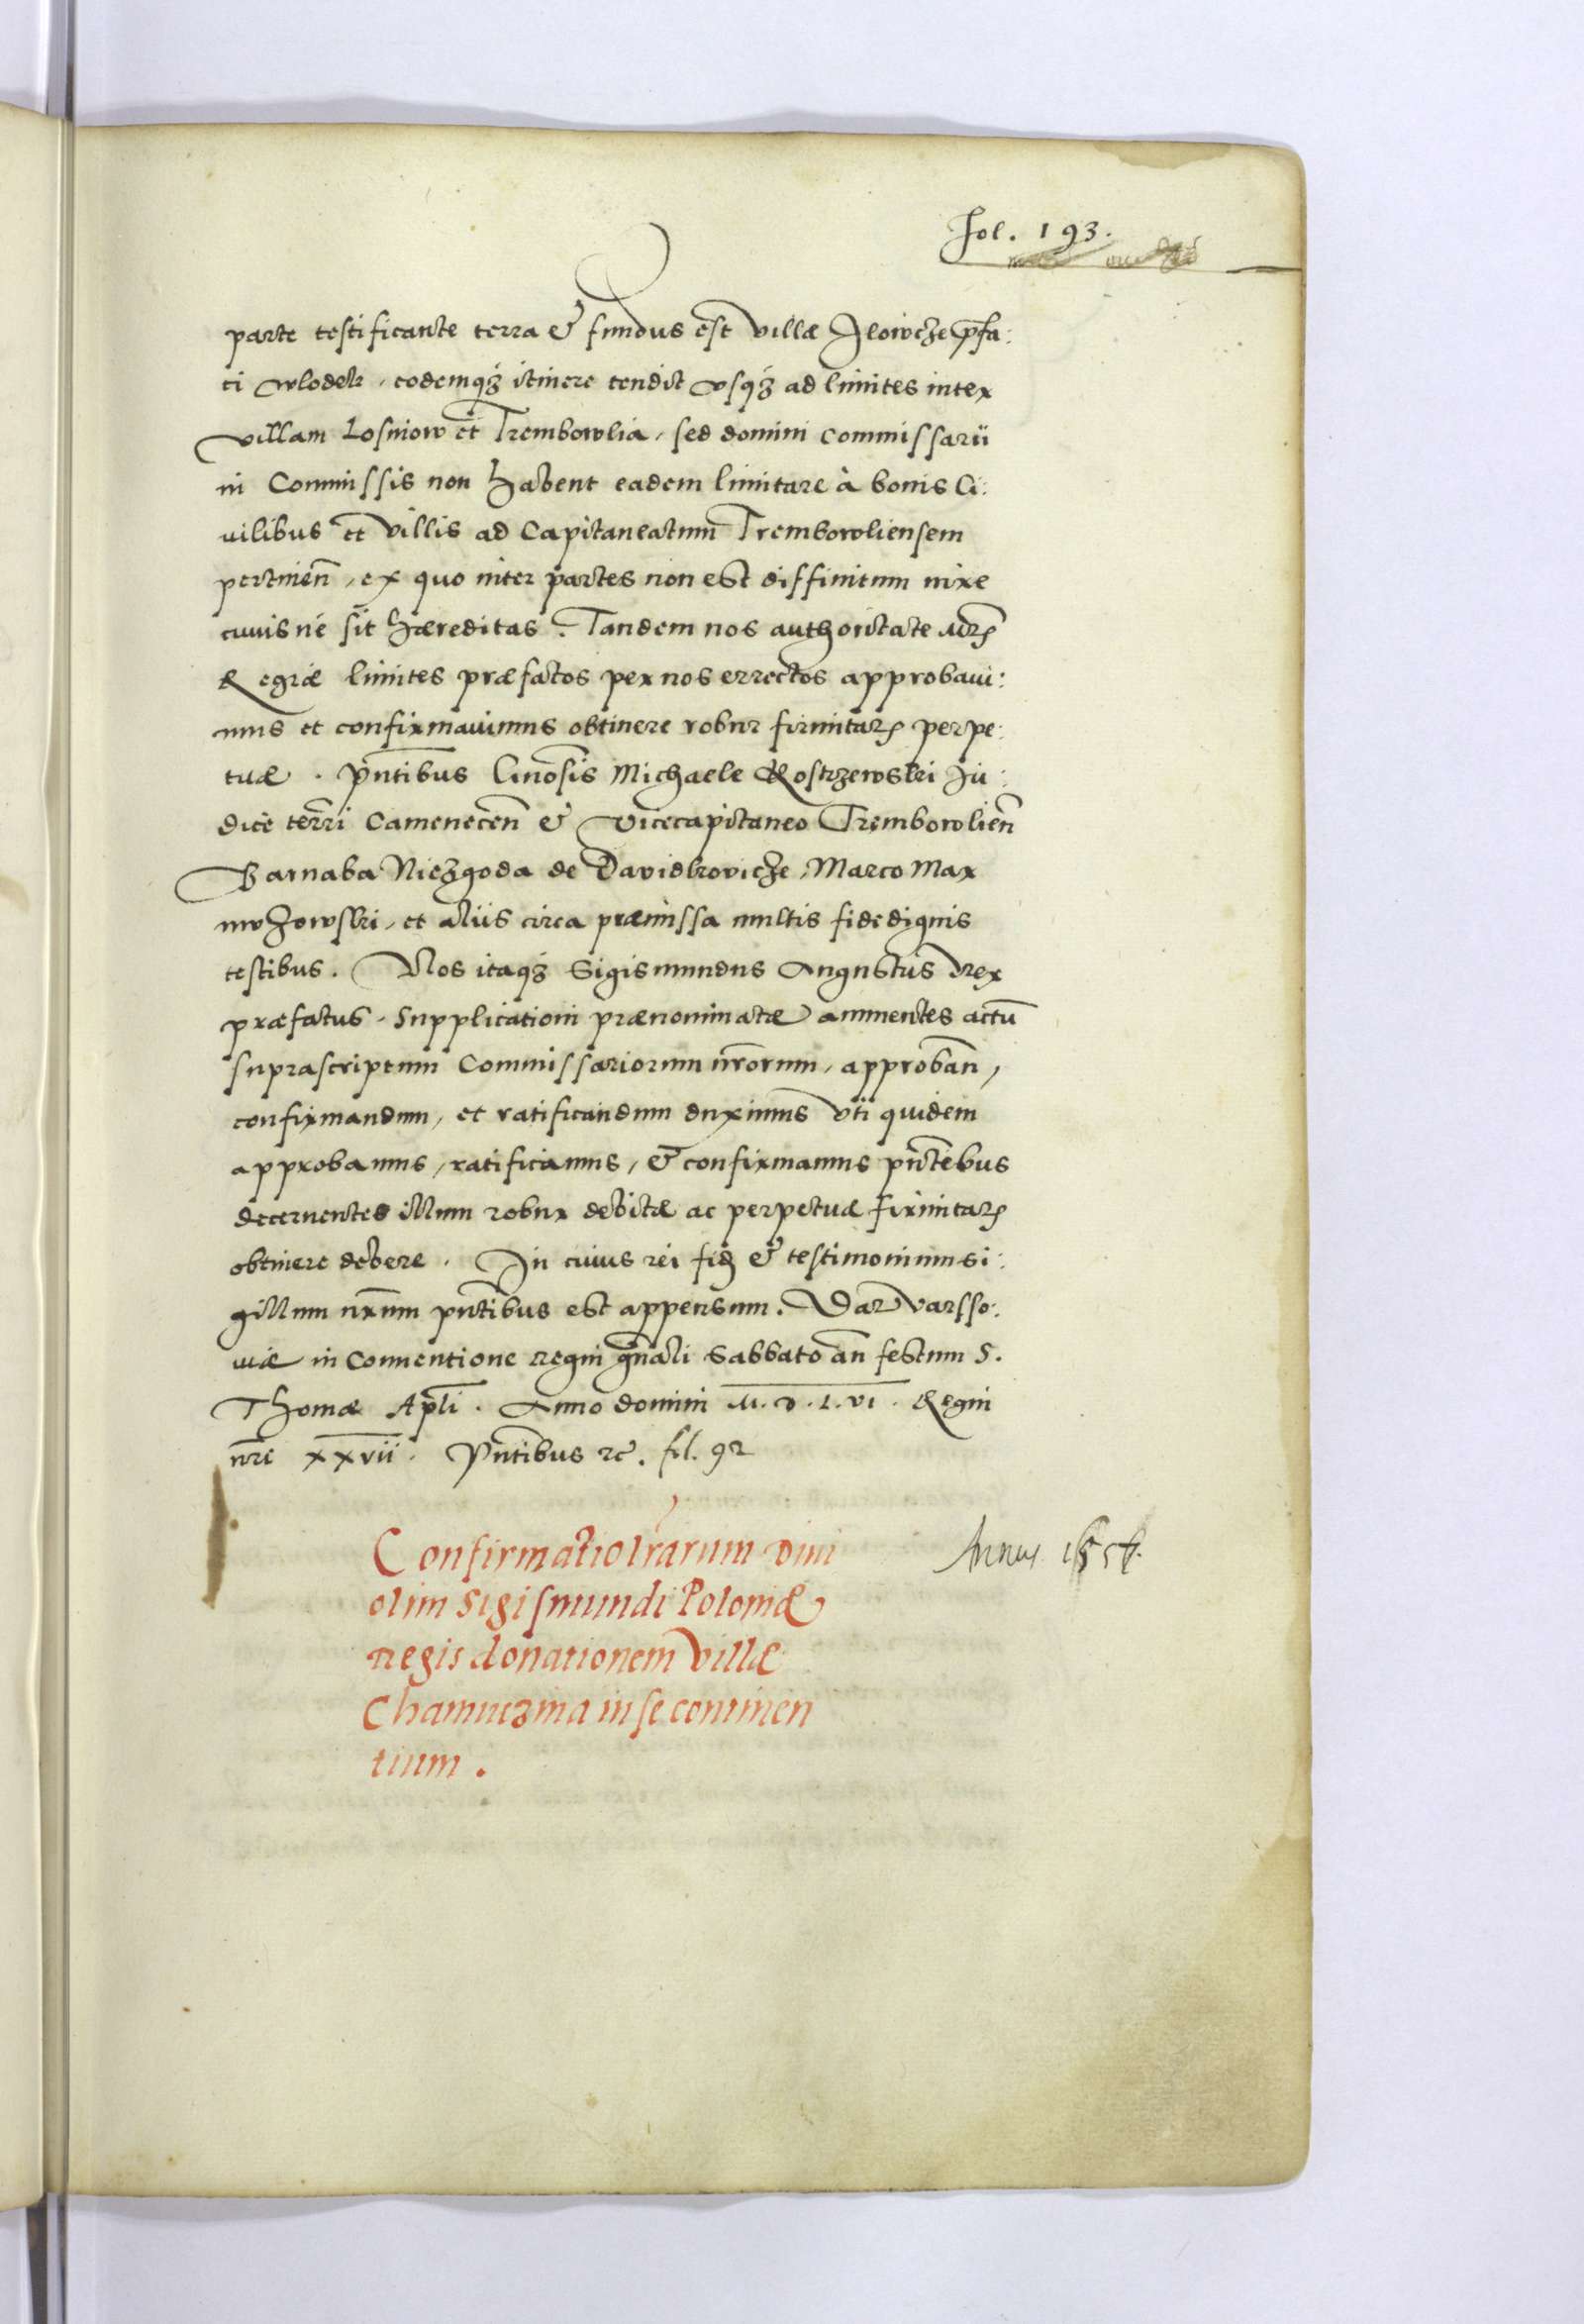 fol. 193.
parte testificante terra & fundus est villæ Ilowcze p̄fa:
ti wlodek, eodemqꝫ itinere tendit vsqꝫ ad limites inter
villam Losniow et Trembowlia, sed domini Commissarii
in Commissis non habent eadem limitare à bonis Ci:
uilibus et villis ad Capitaneatum Trembowliensem
pertinen̄, ex quo inter partes non est diffinitum iure
cuius nè sit hæreditas. Tandem nos authoritate
Regiæ limites præfatos per nos errectos approbaui:
mus et confirmauimus obtinere robur firmitatꝭ perpe:
tuæ. Pn̄tibus Gn̄osis Michaele Rostrzewski Iu:
dice terrī Camenecen̄ & Vicecapitaneo Trembowlien̄
Barnaba Niezgoda de Davidkovicze, Marco Max
et aliis circa præmissa multis fidedignis
testibus. Nos itaqꝫ Sigismundus Augustus rex
præfatus. Supplicationi prænominatæ annuentes actū
suprascriptum Commissariorum nr̄orum, approban̄,
confirmandum, et ratificandum duximus vti quidem
approbamus, ratificamus, & confirmamus pn̄tebus
decernentes illum robur debitæ ac perpetuæ firmitatꝭ
obtinere debere. In cuius rei fidꝫ & testimonium si:
gillum nr̄um pn̄tibus est appensum. Dat̄ Varsso:
uiæ in Conuentione regni gn̄ali Sabbato an̄ festum S.
Thomæ Ap̄li. Anno domini M.D.L.VI. Regni
nr̄i xxvii. Pn̄tibus ꝛc. fol. 92
Confirmatio lr̄arum Diui
olim Sigismundi Poloniæ
regis donationem villæ
in se continen
tium.
Annus